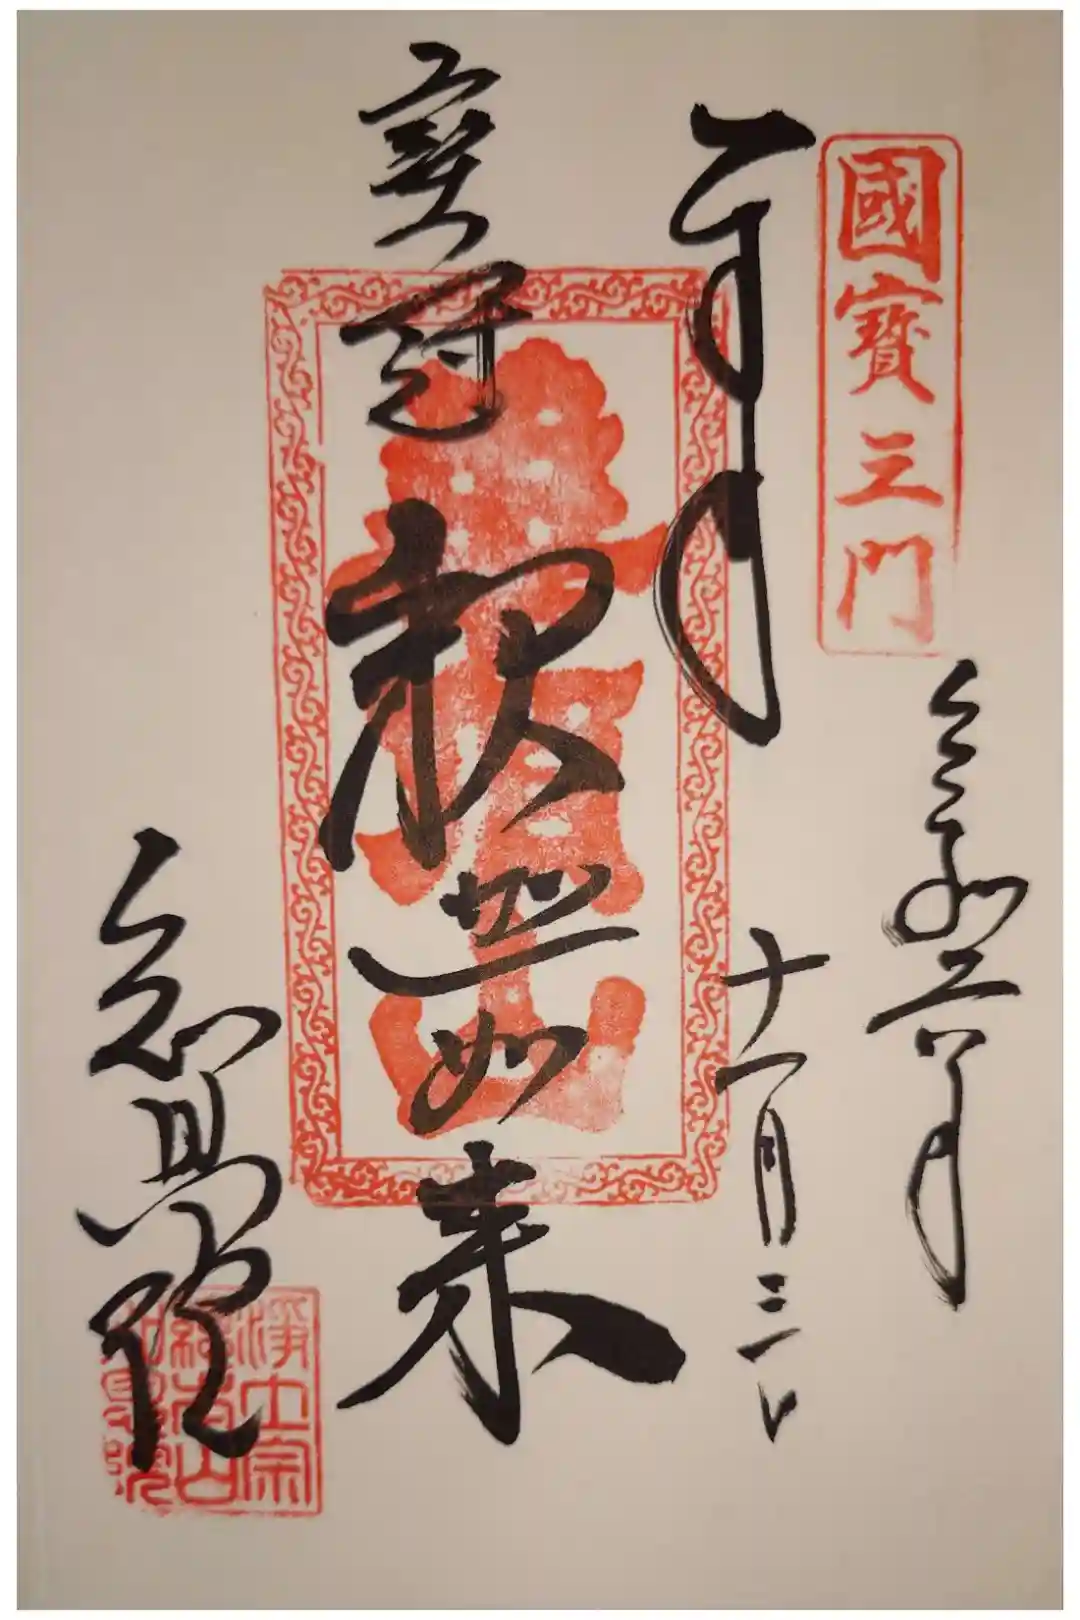 國寶三門
令和六年
十一月三日
奉拝
寶冠釈迦如来
知恩院
浄土宗
総本山
知恩院